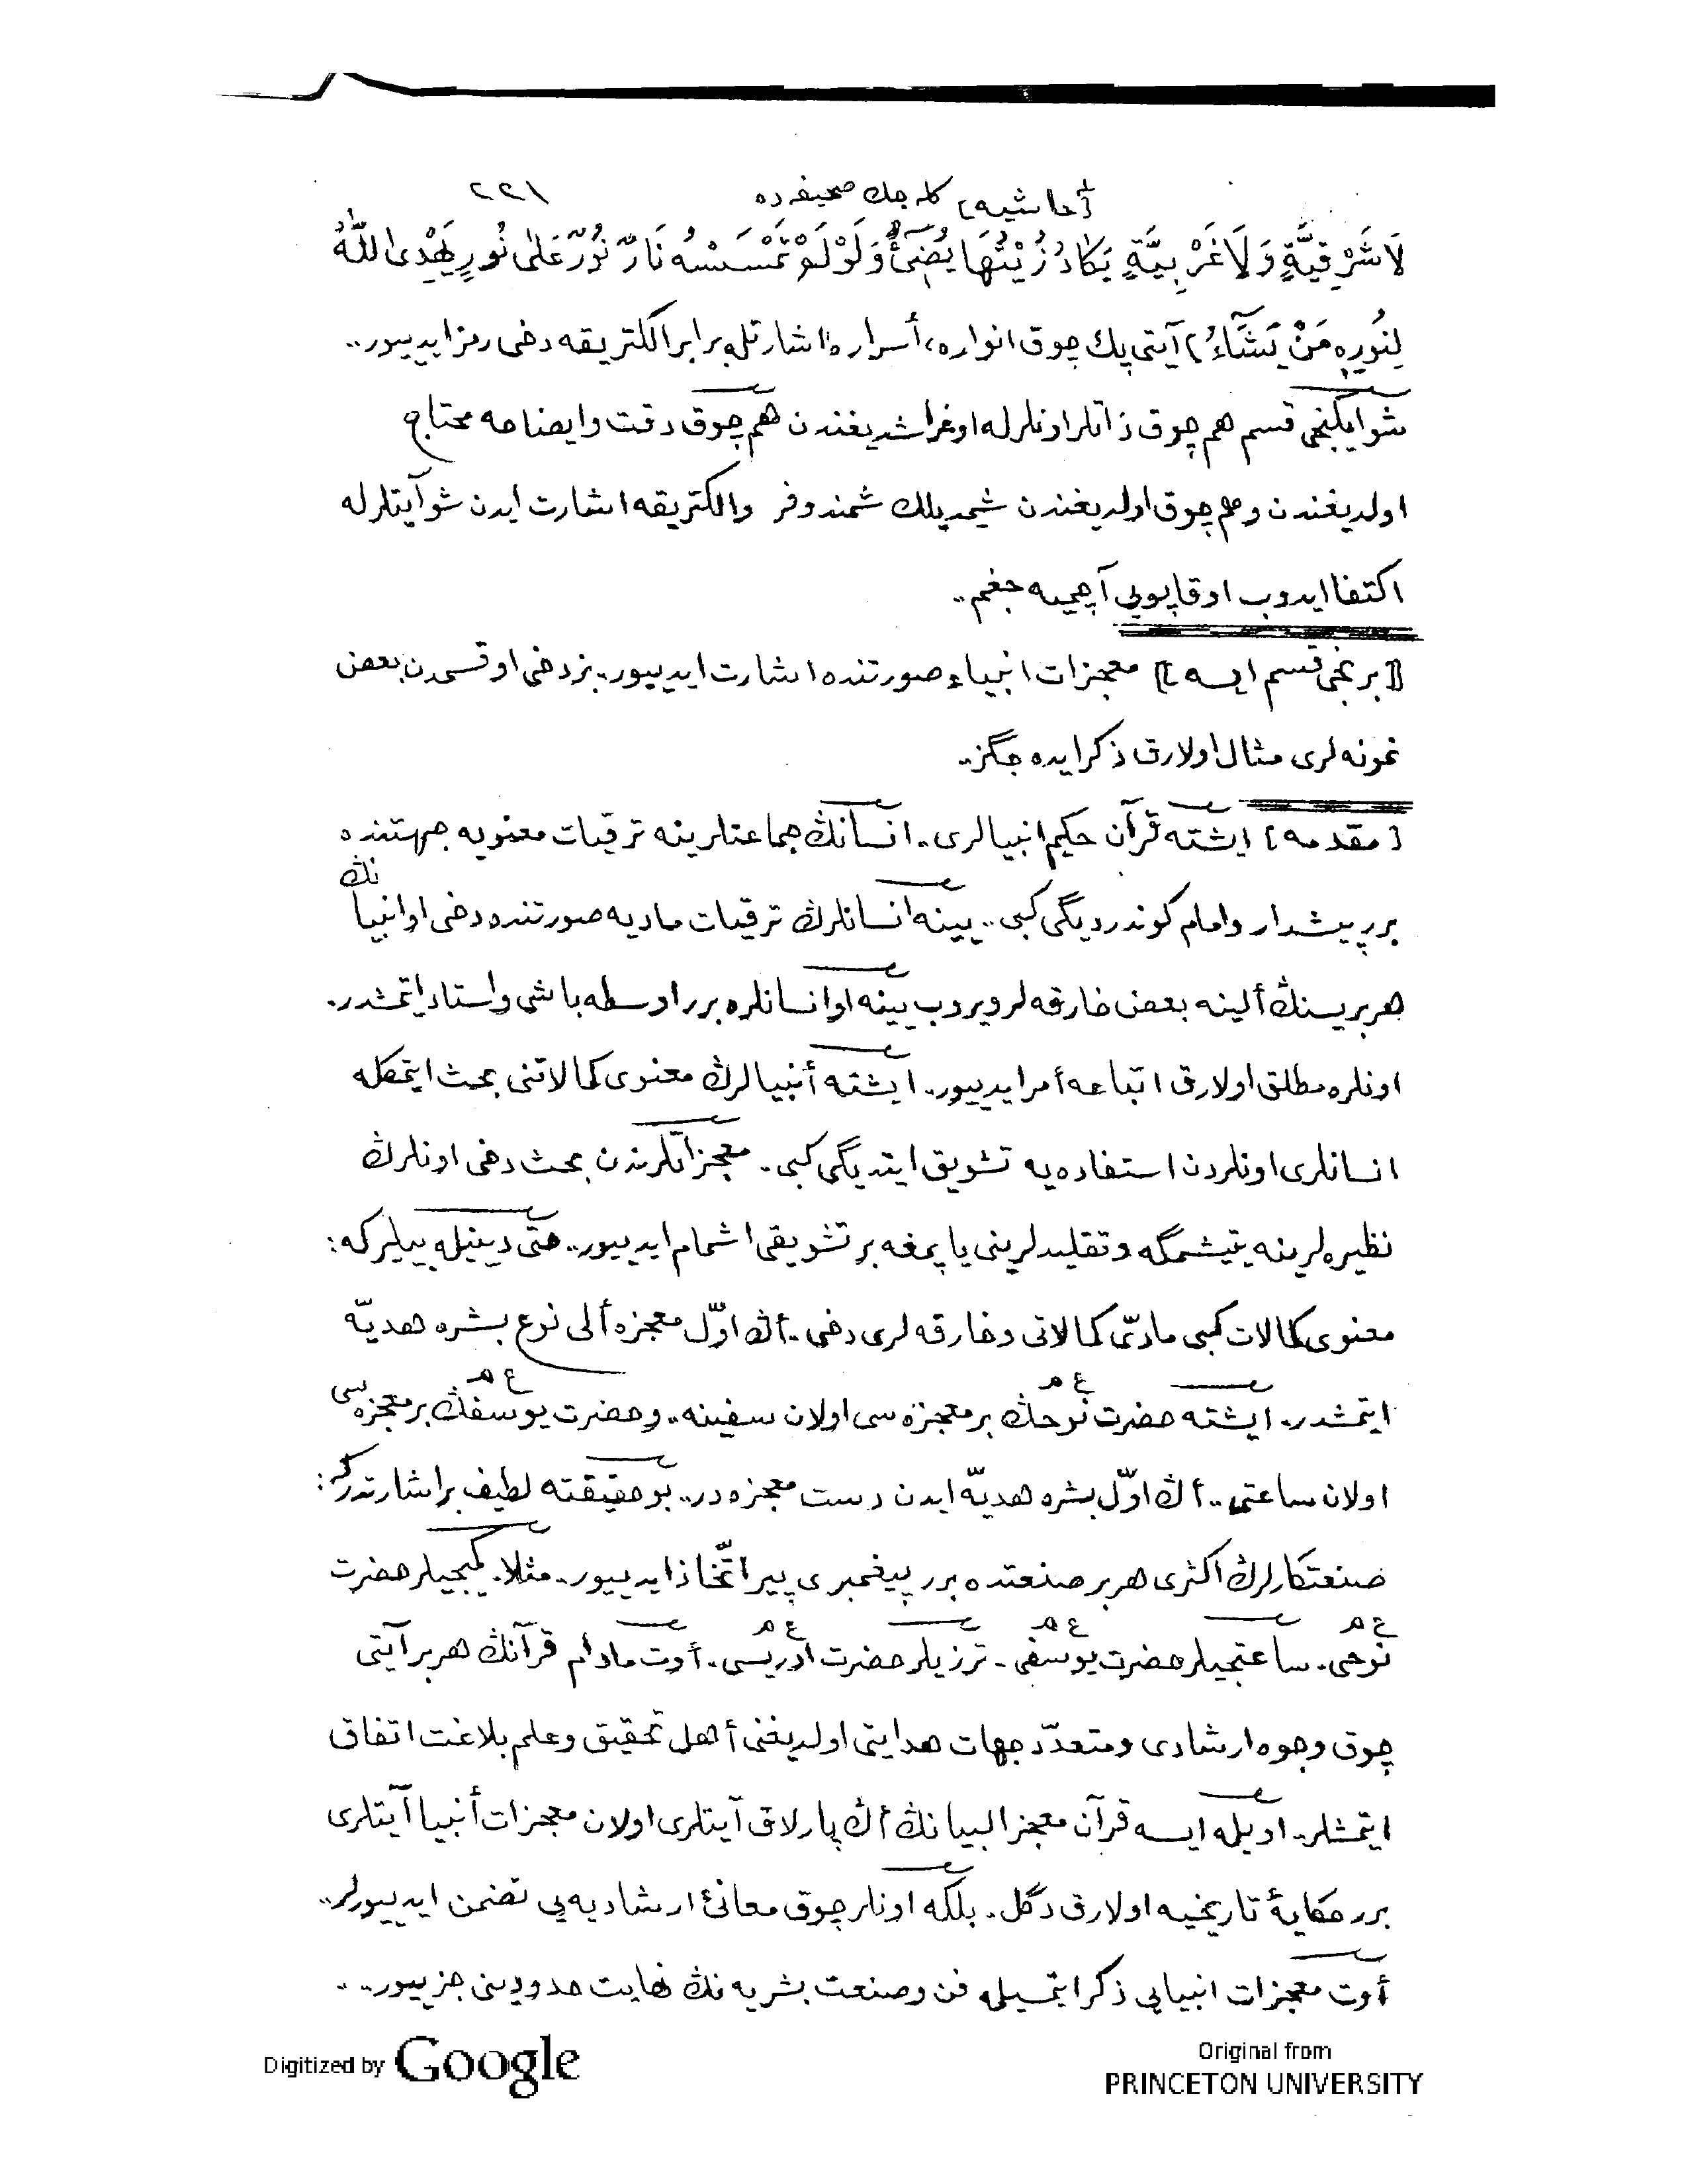 [حاشیه] كله‌جك صحیفه‌ده ٢٢١
لَا شَرْقِیَّةٍ وَلَا غَرْبِیَّةٍ یَكَادُ زَیْتُهَا یُضِیۤئُ وَلَوْ لَمْ تَمْسَسْهُ نَارٌ نُورٌ عَلٰى نُورٍ یَهْدِى اللّٰهُ
لِنُورِهِ مَنْ یَشَۤاءُ) آیتی پك چوق انواره، أسراره اشارتله برابر الكتریقه دخی رمز ایدییور..
شو ایكنجی قسم هم چوق ذاتلر اونلرله اوغراشدیغندن هم چوق دقت وایضاحه محتاج
اولدیغندن وهم چوق اولدیغندن شیمدیلك شمندوفر والكتریقه اشارت ایدن شو آیتلرله
اكتفا ایدوب او قاپویی آچمیه‌جغم..
[برنجی قسم ایسه] معجزات انبیاء صورتنده اشارت ایدییور. بز دخی او قسمدن بعض
نمونه‌لری مثال اولارق ذكر ایده‌جگز..
[مقدمه] ایشته قرآن حكیم انبیالری. انسانڭ جماعتلرینه ترقیات معنویه جهتنده
برر پیشدار وامام كوندردیگی كبی.. یینه انسانلرڭ ترقیات مادیه صورتنده دخی او انبیانڭ
هر بریسنڭ ألینه بعض خارقه‌لر ویروب یینه او انسانلره برر اوسطه باشی واستاد ایتمشدر.
اونلره مطلق اولارق اتباعه أمر ایدییور. ایشته أنبیالرڭ معنوی كمالاتنی بحث ایتمكله
انسانلری اونلردن استفاده‌یه تشویق ایتدیگی كبی. معجزاتلرندن بحث دخی اونلرڭ
نظیره‌لرینه یتیشمگه وتقلیدلرینی یاپمغه بر تشویقی اشمام ایدییور.. حتی دینیله‌بیلیر كه:
معنوی كمالات كبی مادّی كمالاتی وخارقه‌لری دخی. أڭ اوّل معجزه ألی نوع بشره هدیّه
ایتمشدر. ایشته حضرت نوحڭ ع م بر معجزه‌سی اولان سفینه. وحضرت یوسفڭ ع م بر معجزه‌سی
اولان ساعتی.. أڭ اوّل بشره هدیّه ایدن دست معجزه‌در.. بو حقیقته لطیف بر اشارتدر كه:
صنعتكارلرڭ اكثری هر بر صنعتده برر پیغمبری پیر اتّخاذ ایدییور. مثلا. كمیجیلر حضرت
نوحی ع م. ساعتجیلر حضرت یوسفی ع م. ترزیلر حضرت ادریسی ع م. أوت مادام قرآنڭ هر بر آیتی
چوق وجوه ارشادی ومتعدّد جهات هدایتی اولدیغنی أهل تحقیق وعلم بلاغت اتفاق
ایتمشلر. اویله ایسه قرآن معجز البیانڭ أڭ پارلاق آیتلری اولان معجزات أنبیا آیتلری
برر حكایۀ تاریخیه اولارق دگل. بلكه اونلر چوق معانئ ارشادیه‌یی تضمن ایدییورلر..
أوت معجزات انبیایی ذكر ایتمسیله فن وصنعت بشریه‌نڭ نهایت حدودینی چزییور..
Digitized by Google
Original from
PRINCETON UNIVERSITY